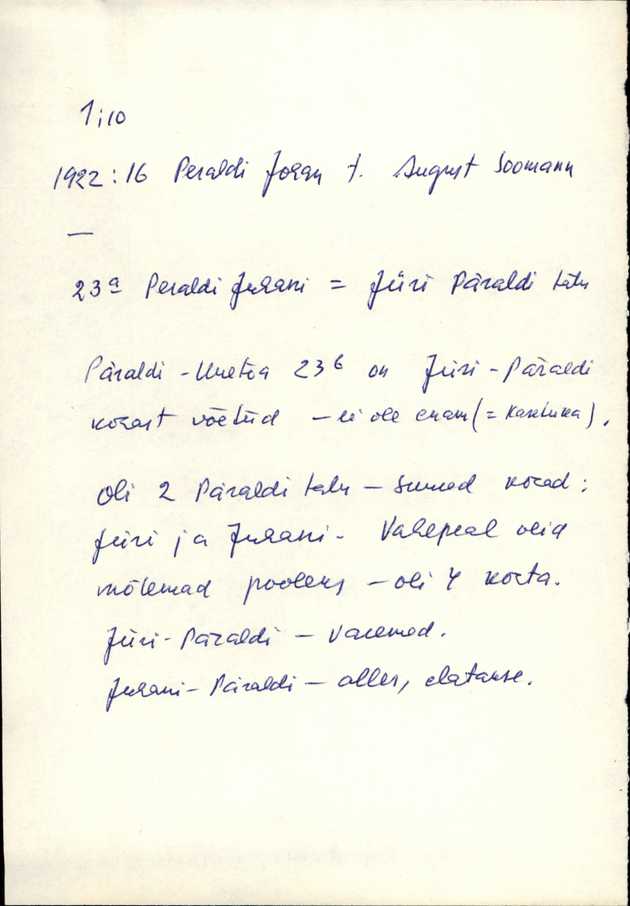 1;10
1922:16 Peraldi Joran t. August Soomann
—
23a Peraldi Juhani = Jüri Päraldi talu
Päraldi - 23b on Jüri - Päraldi
korast võetud — ei ole enam (= ).
Oli 2 Päraldi talu — suured korad:
Jüri ja Juhani. Vahepeal olid
mõlemad pooleks — oli 4 korta.
Jüri-Päraldi — varemed.
Juhani-Päraldi — alles, elatakse.